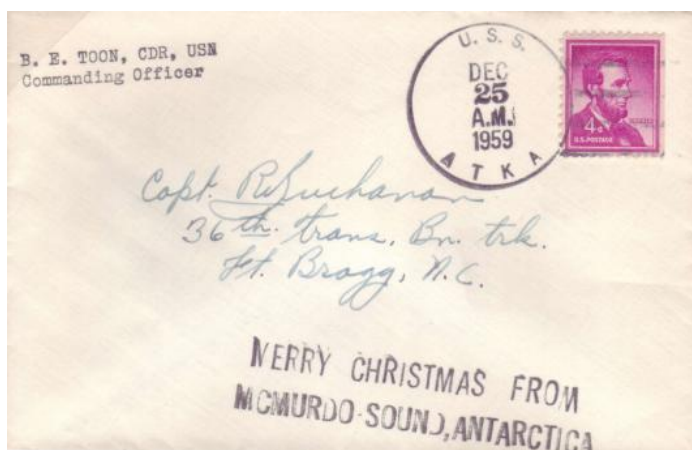 B. E. TOON, CDR, USN
Commanding Officer
U. S. S.
DEC
25
A.M.
1959
ATKA
4¢
U.S. POSTAGE
Capt. R. Buchanan
36th. trans. Bn. trk.
Ft. Bragg, N.C.
MERRY CHRISTMAS FROM
MCMURDO SOUND, ANTARCTICA